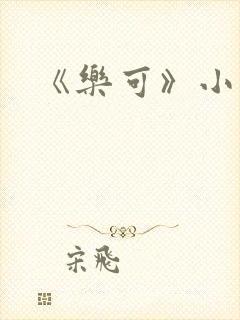 《樂可》小
宋飛